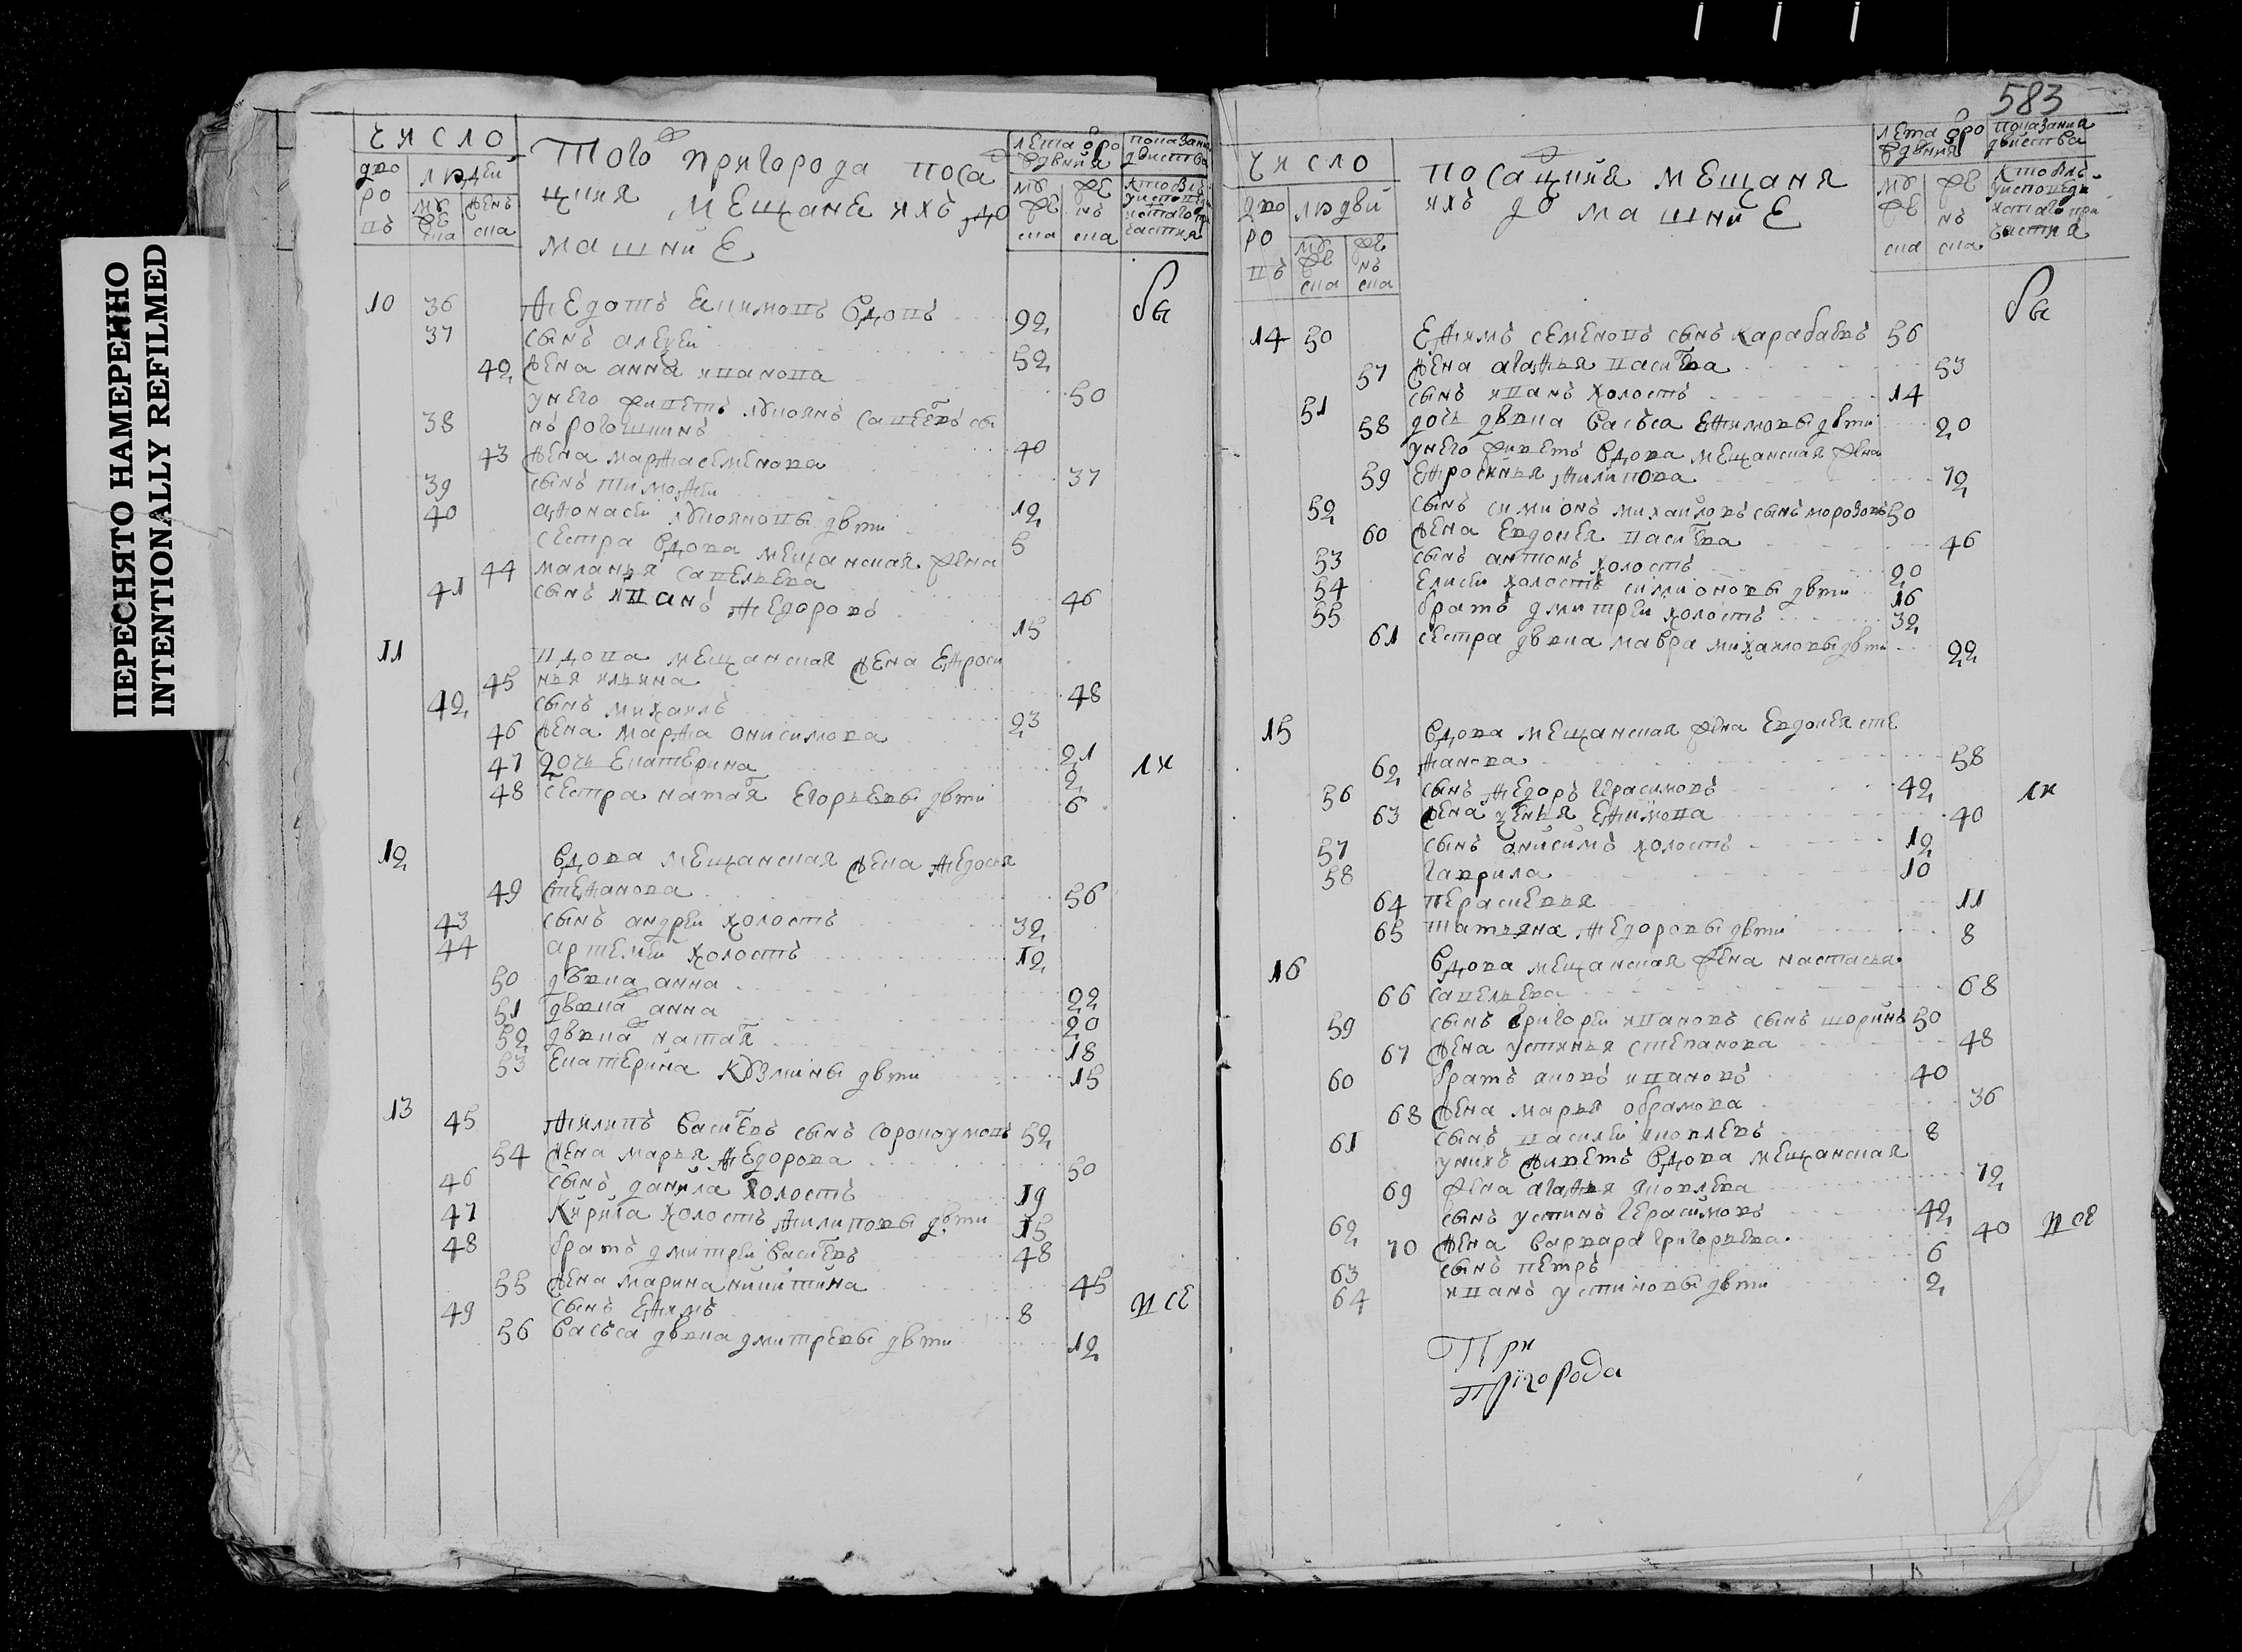 ПЕРЕСНЯТО НАМЕРЕННО
INTENTIONALLY REFILMED
число
дво ро въ
людей
муже ска
женъ ска
Того пригорода поса
цкия мещане ихъ до
машние
лета о ро
ждения
муже ска
же нъ ска
показание
действа
кто былъ
у исповеди
и стаго при
частия
10 36 Федотъ Екимовъ вдовъ 92 бы
37 сынъ алексеи 52
42 жена анна иванова 50
у него живетъ лукоянъ савелевъ сы
38 нъ рогошкинъ 40
43 жена марфа семенова 37
39 сынъ тимофеи 12
40 афонасеи лукояновы дети 5
сестра вдова мещанская жена
44 маланья савельева 46
41 сынъ иванъ федоровъ 15
11 вдова мещанская жена Ефроси
45 нья ильина 48
42 сынъ михаилъ 23
46 жена марфа онисимова 21
47 дочь Екатерина 2 ли
48 сестра наталя Егорьевы дети 6
12 вдова мещанская жена федосья
49 стефанова 56
43 сынъ андреи холостъ 32
44 артемеи холостъ 12
50 девка анна 22
51 девка анна 20
52 девка наталя 18
53 Екатерина кузмины дети 15
13 45 филипъ василевъ сынъ сорокоумовъ 52
54 жена марья федорова 50
46 сынъ данила холостъ 19
47 Кирила холостъ филиповы дети 15
48 братъ дмитреи василевъ 48
55 жена марина никитина 45
49 сынъ Ефимъ 8 и се
56 васъса девка дмитревы дети 12
583
число
дво ро въ
людеи
муже ска
же нъ ска
посацкия мещаня
ихъ до машние
лета о ро
ждения
муже ска
же нъ ска
показания
действа
кто былъ
у исповеди
и стаго при
частия
14 50 Ефимъ семеновъ сынъ карабаевъ 56 бы
57 жена агафья василева 53
51 сынъ иванъ холостъ 14
58 дочь девка васъса Ефимовы дети 20
у него живетъ вдова мещанская жена
59 Ефросинья филипова 72
52 сынъ симионъ михаиловъ сынъ морозовъ 50
60 жена Евдокея василева 46
53 сынъ антонъ холостъ 20
54 Елисеи холостъ симионовы дети 16
55 братъ дмитреи холостъ 32
61 сестра девка мавра михаиловы дети 22
15 вдова мещанская жена Евдокея сте
62 фанова 58
56 сынъ федоръ герасимовъ 42 ли
63 жена ксенья Ефимова 40
57 сынъ анисимъ холостъ 12
58 гаврила 10
64 перасковья 11
65 татьяна федоровы дети 8
16 вдова мещанская жена настасья
66 савельева 68
59 сынъ григореи ивановъ сынъ шоринъ 50
67 жена устинья степанова 48
60 братъ яковъ ивановъ 40
68 жена марья обрамова 36
61 сынъ василеи яковлевъ 8
у нихъ живетъ вдова мещанская
69 жена агафья яковлева 72
62 сынъ устинъ герасимовъ 42
70 жена варвара григорьева 40 и се
63 сынъ петръ 6
64 иванъ устиновы дети 2
При
пригорода